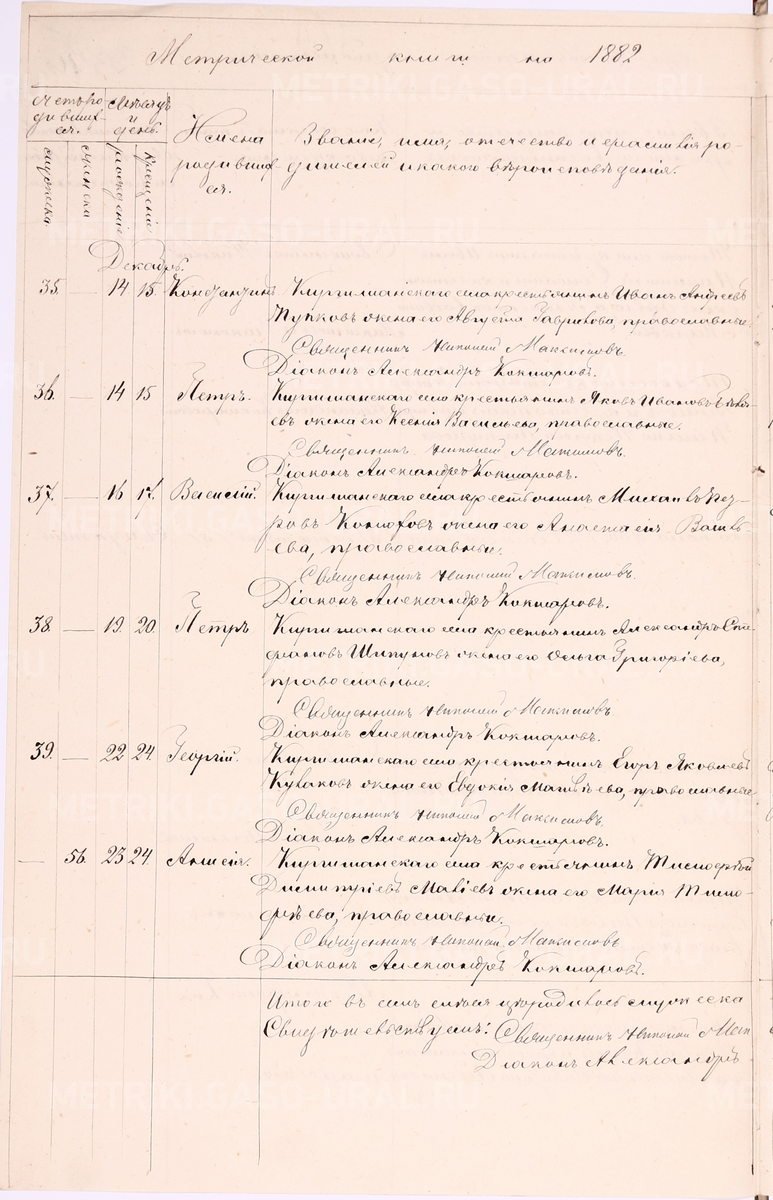 Метрической книги на 1882
Счетъ родившихся. Мѣсяцъ и день. Имена родившихся. Званіе, имя, отечество и фамилія родителей и какого вѣроисповѣданія.
мужеска женска рожденія крещенія
Декабрь.
35. — 14 15. Константинъ Киргишанскаго села крестьянинъ Иванъ Андреевъ
Пупковъ жена его Августа Гаврилова, православные.
Священникъ Николай Максимовъ.
Діаконъ Александръ Кокшаровъ.
36. — 14 15 Петръ. Киргишанскаго села крестьянинъ Яковъ Ивановъ
евъ жена его Ксенія Васильева, православные.
Священникъ Николай Максимовъ.
Діаконъ Александръ Кокшаровъ.
37. — 16 17. Василій. Киргишанскаго села крестьянинъ Михаилъ Пет-
ровъ жена его Анастасія Василь-
ева, православные.
Священникъ Николай Максимовъ.
Діаконъ Александръ Кокшаровъ.
38. — 19. 20. Петръ Киргишанскаго села крестьянинъ Александръ Сте-
фановъ Шипуновъ жена его Ольга Григоріева,
православные.
Священникъ Николай Максимовъ
Діаконъ Александръ Кокшаровъ.
39. — 22 24. Георгій. Киргишанскаго села крестьянинъ Егоръ Яковлевъ
Куваковъ жена его Евдокія Матвѣева, православные
Священникъ Николай Максимовъ.
Діаконъ Александръ Кокшаровъ.
— 56. 23 24. Анисія. Киргишанскаго села крестьянинъ Тимофей
Димитріевъ жена его Марія Тимо-
фѣева, православные.
Священникъ Николай Максимовъ
Діаконъ Александръ Кокшаровъ.
Итого въ семъ мѣсяцѣ родилось мужеска
Свидѣтельствуемъ: Священникъ Николай Мак
Діаконъ Александръ
METRIKI.GASO-URAL.RU